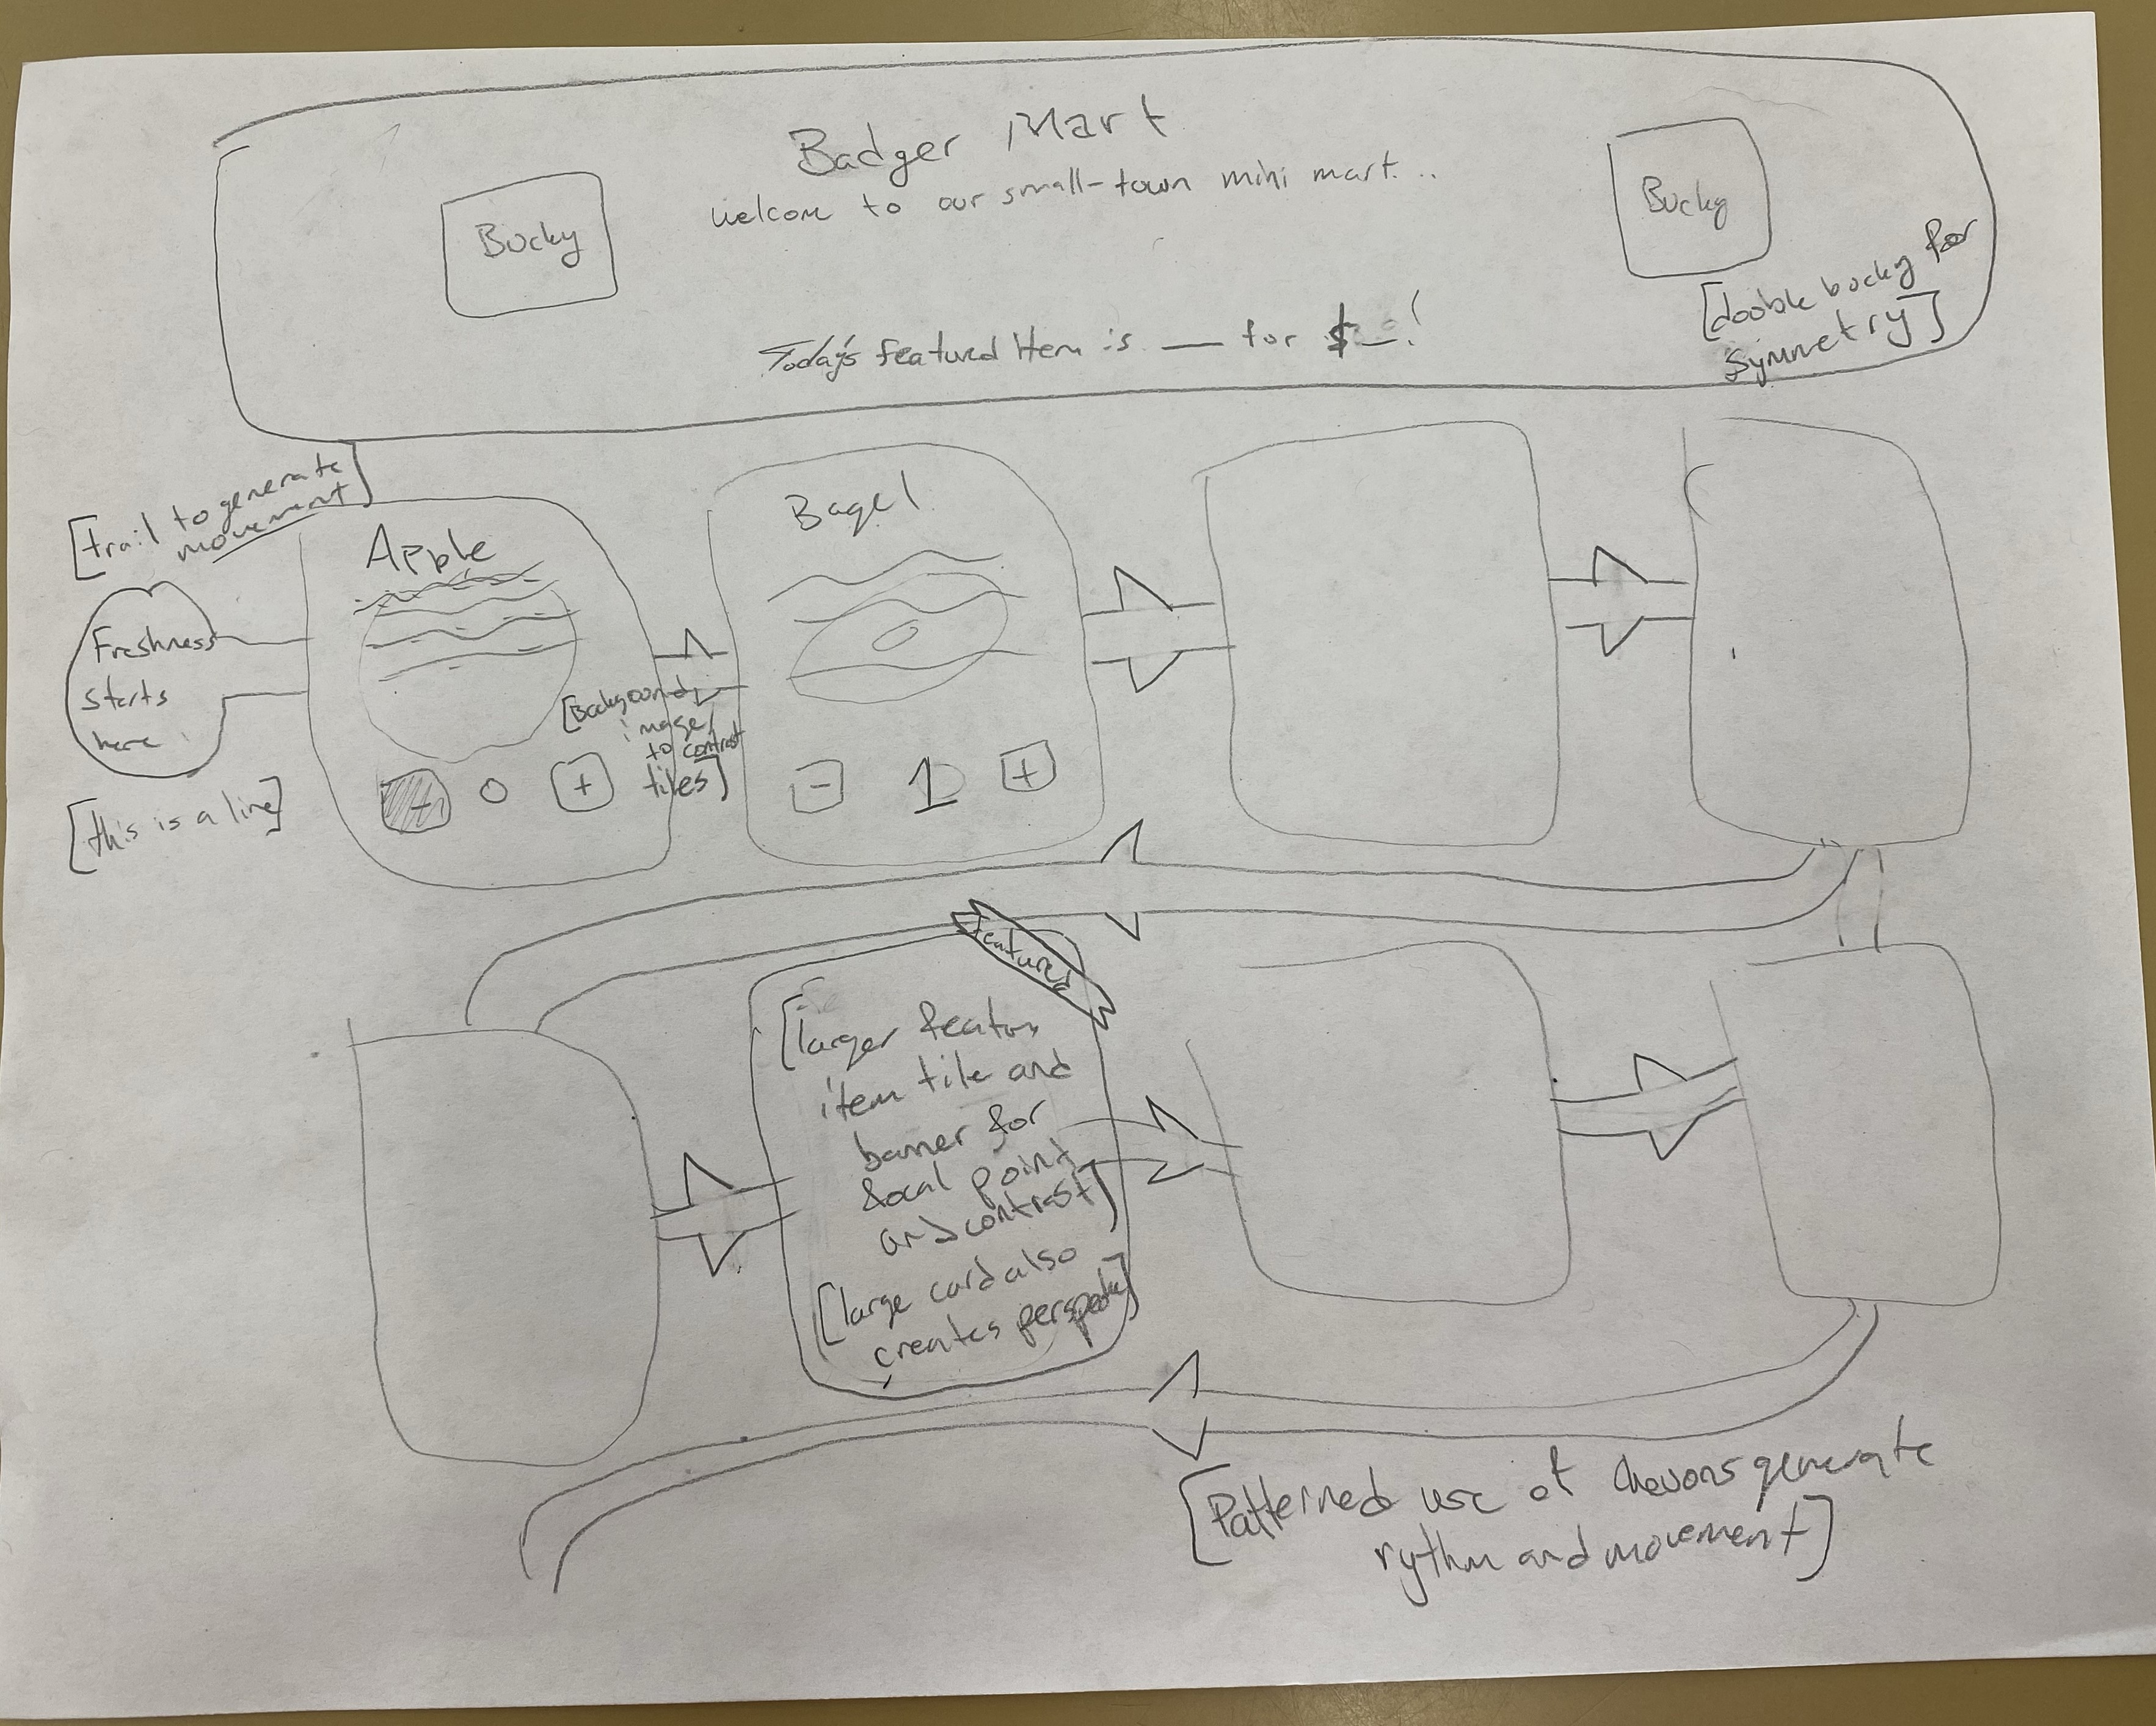 Badger Mart
welcome to our small-town mini mart...
Bucky
Bucky
[double bucky for
symmetry]
Today's featured Item is __ for $_!
[trail to generate
movement]
Freshness
starts
here
[this is a line]
Apple
[Background
image
to contrast
tiles]
- 0 +
Bagel
- 1 +
featured
[larger feature
item tile and
banner for
focal point
and contrast]
[large card also
creates perspective]
[Patterned use of chevons generate
rythm and movement]